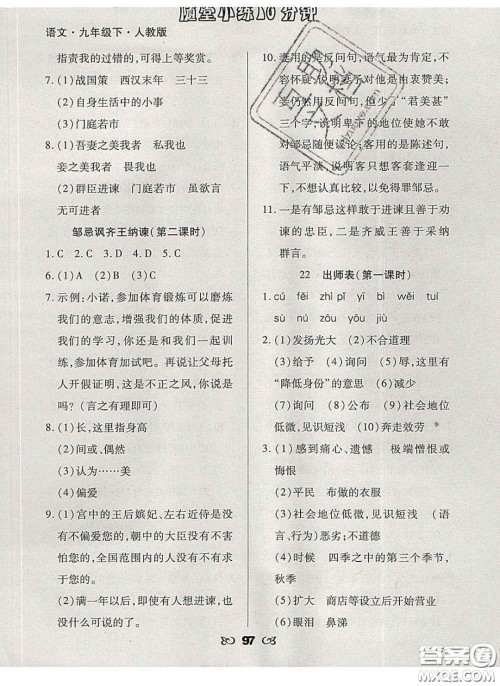 随堂小练10分钟
语文·九年级下·人教版
指责我的过错的,可得上等奖赏。
7. (1)战国策 西汉末年 三十三
(2)自身生活中的小事
(3)门庭若市
8. (1)吾妻之美我者 私我也
妾之美我者 畏我也
(2)群臣进谏 门庭若市 虽欲言
无可进者
邹忌讽齐王纳谏(第二课时)
1. C 2. C 3. D 4. D 5. C
6. (1)A (2)B (3)D
7. 示例:小诺,参加体育锻炼可以磨砺
我们的意志,增强我们的体质,促进
我们的学习,你还是和我们一起训
练,参加体育加试吧。再说让父母托
人开假证明,这是不正之风,你说是
吗? (言之有理即可)
8. (1)长,这里指身高
(2)间或、偶然
(3)认为……美
(4)偏爱
9. (1)宫中的王后嫔妃、左右近侍是没
有不偏爱您的,朝中的大臣没有不惧
怕您的,全国范围内的人没有不有求
于您的。
(2)满一年以后,即使有人想进谏,也
没什么可说的了。
10. 妻用的是反问句,语气最为肯定,不
容怀疑,说明妻子对他是由衷赞美;
妾仍然用反问句,但少了“君美甚”
三个字,说明卑下的地位使她不敢
对邹忌随便议论;客用的是陈述句,
语气平淡,说明客只想客套逢迎一
下,不想热心,以免得罪邹忌。
11. 一是有邹忌这样敢于进谏且善于劝
谏的忠臣,二是齐威王善于采纳
群言。
22 出师表(第一课时)
1. cú fěi zhì pǐ yī wěi tuí
sù nú zōu yōu jiù
2. (1)发扬光大 (2)不合道理
(3)给予 (4)询问 (5)辱,这里有
“降低身份”的意思 (6)减少
(7)询问 (8)公布 (9)社会地位
低微,见识短浅 (10)奔走效劳
3. (1)感到痛心、遗憾 极端憎恨或
悔恨
(2)平民 布做的衣服
(3)社会地位低微,见识短浅 (言
语、行为)恶劣;不道德
(4)时候 四季之中的第三个季节,
秋季
(5)扩大 商店等设立后开始营业
(6)眼泪 鼻涕
97
答案圈